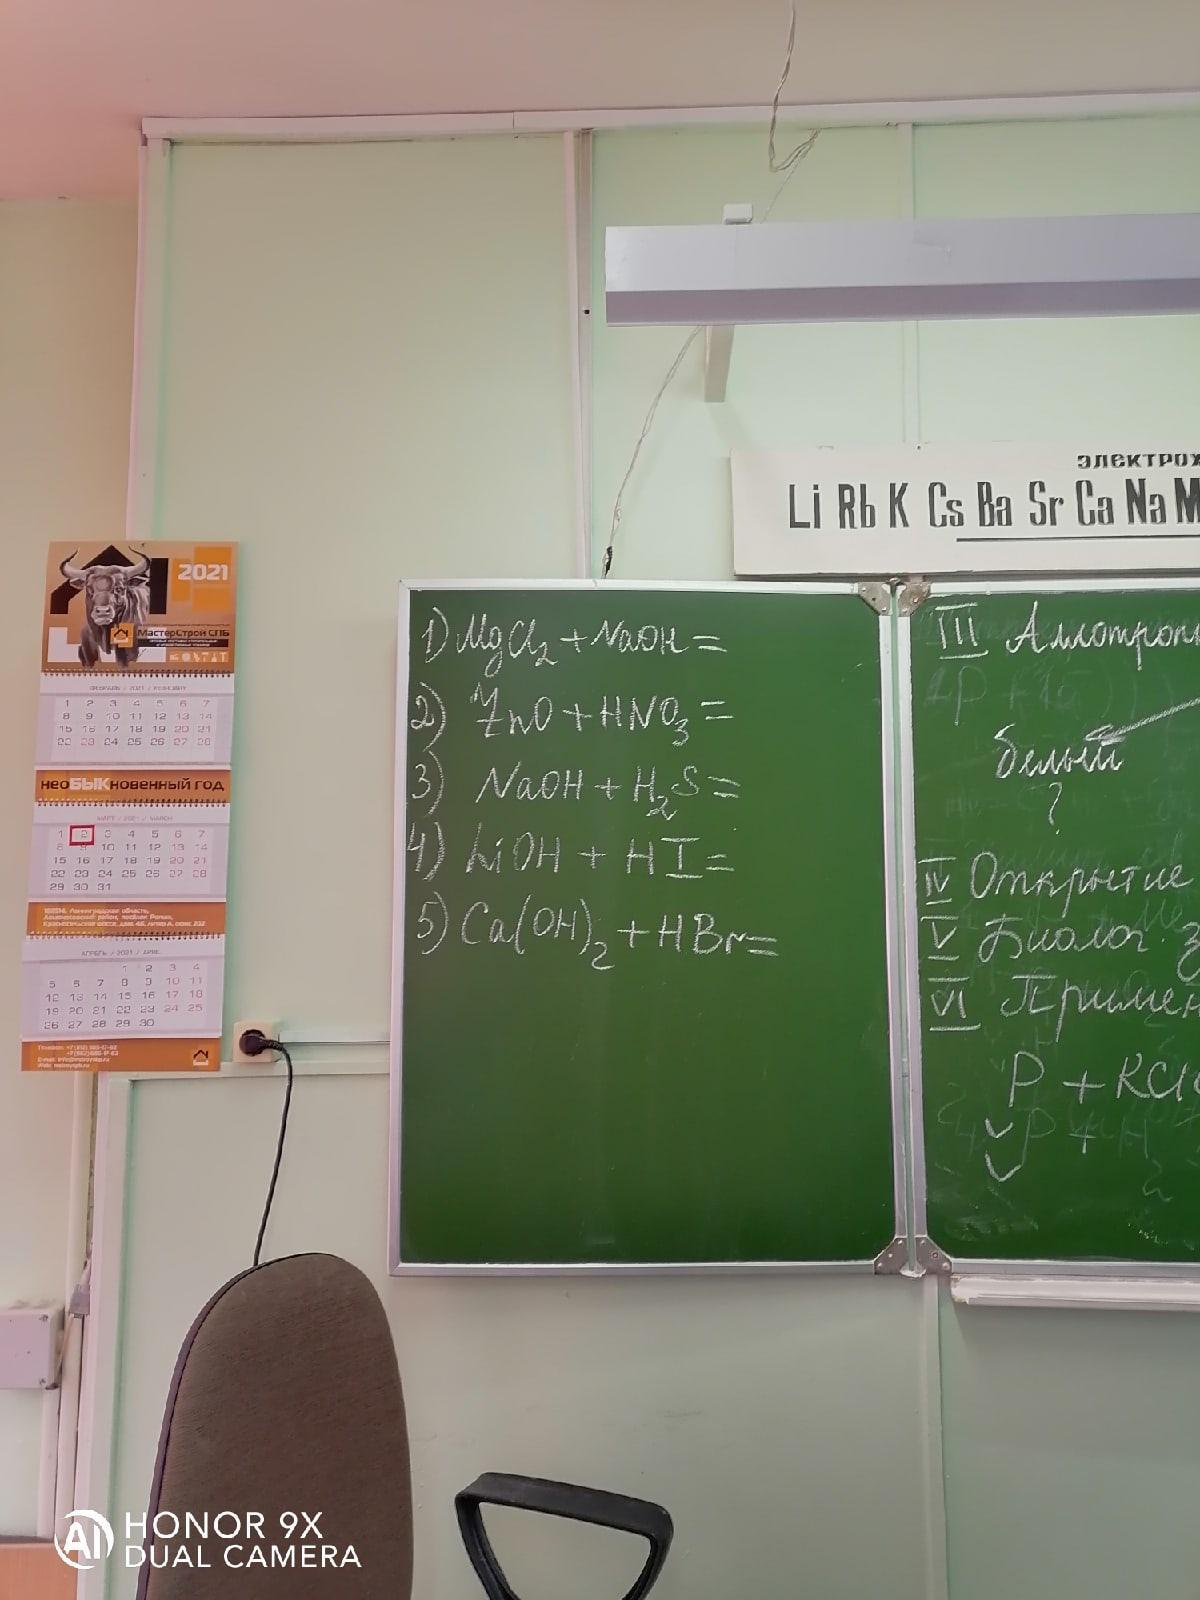 ЭЛЕКТРОХ
Li Rb K Cs Ba Sr Ca Na M
2021
МастерСтрой СПБ
ФЕВРАЛЬ / 2021 / FEBRUARY
1 2 3 4 5 6 7
8 9 10 11 12 13 14
15 16 17 18 19 20 21
22 23 24 25 26 27 28
неоБЫКновенный год
МАРТ / 2021 / MARCH
1 2 3 4 5 6 7
8 9 10 11 12 13 14
15 16 17 18 19 20 21
22 23 24 25 26 27 28
29 30 31
АПРЕЛЬ / 2021 / APRIL
1 2 3 4
5 6 7 8 9 10 11
12 13 14 15 16 17 18
19 20 21 22 23 24 25
26 27 28 29 30
1) MgCl₂ + NaOH =
2) ZnO + HNO₃ =
3) NaOH + H₂S =
4) LiOH + HI =
5) Ca(OH)₂ + HBr =
III Аллотроп
белый
?
IV Открытие
V Биолог. з
VI Примен
P + KCl
P + H
HONOR 9X
DUAL CAMERA